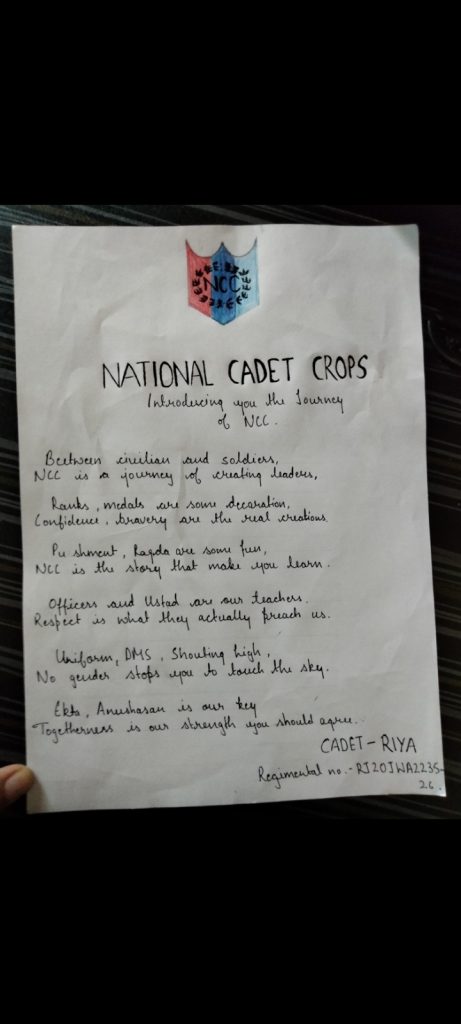 NCC
NATIONAL CADET CROPS
Introducing you the Journey
of NCC.
Beetween civilian and soldiers,
NCC is a journey of creating leaders,
Ranks, medals are some decoration,
Confidence, bravery are the real creations.
Pu shment, Ragda are some fun,
NCC is the story that make you learn.
Officers and Ustad are our teachers.
Respect is what they actually preach us.
Uniform, DMS, Shouting high,
No gender stops you to touch the sky.
Ekta, Anushasan is our key
Togetherness is our strength you should agree.
CADET - RIYA
Regimental no.- RJ20JWA2235-
26.